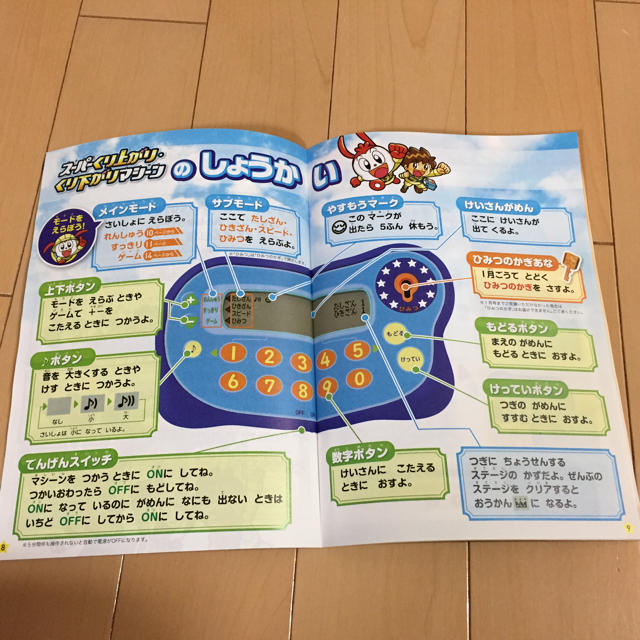 スーパーくり上がり・
くり下がりマシーン
のしょうかい
モードを
えらぼう!
メインモード
さいしょに えらぼう。
れんしゅう 10ページから
すっきり 11ページから
ゲーム 14ページから
サブモード
ここで たしざん・
ひきざん・スピード・
ひみつを えらぶよ。
やすもうマーク
この マークが
出たら 5ふん 休もう。
けいさんがめん
ここに けいさんが
出て くるよ。
ひみつのかぎあな
1月ごうで とどく
ひみつのかぎを さすよ。
上下ボタン
モードを えらぶ ときや
ゲームで +-を
こたえる ときに つかうよ。
♪ボタン
音を 大きくする ときや
けす ときに つかうよ。
なし 小 大
さいしょは 小に なって いるよ。
たしざん
ひきざん
スピード
ひみつ
すっきり
ゲーム
+
-
♪
1 2 3 4 5
6 7 8 9 0
OFF
ひみつ
もどる
けってい
もどるボタン
まえの がめんに
もどる ときに おすよ。
けっていボタン
つぎの がめんに
すすむ ときに おすよ。
でんげんスイッチ
マシーンを つかう ときに ONに してね。
つかいおわったら OFFに もどしてね。
ONに なって いるのに がめんに なにも 出ない ときは
いちど OFFに してから ONに してね。
数字ボタン
けいさんに こたえる
ときに おすよ。
つぎに ちょうせんする
ステージの かずだよ。ぜんぶの
ステージを クリアすると
おうかん に なるよ。
※5分間何も操作されないと自動で電源がOFFになります。
8
9